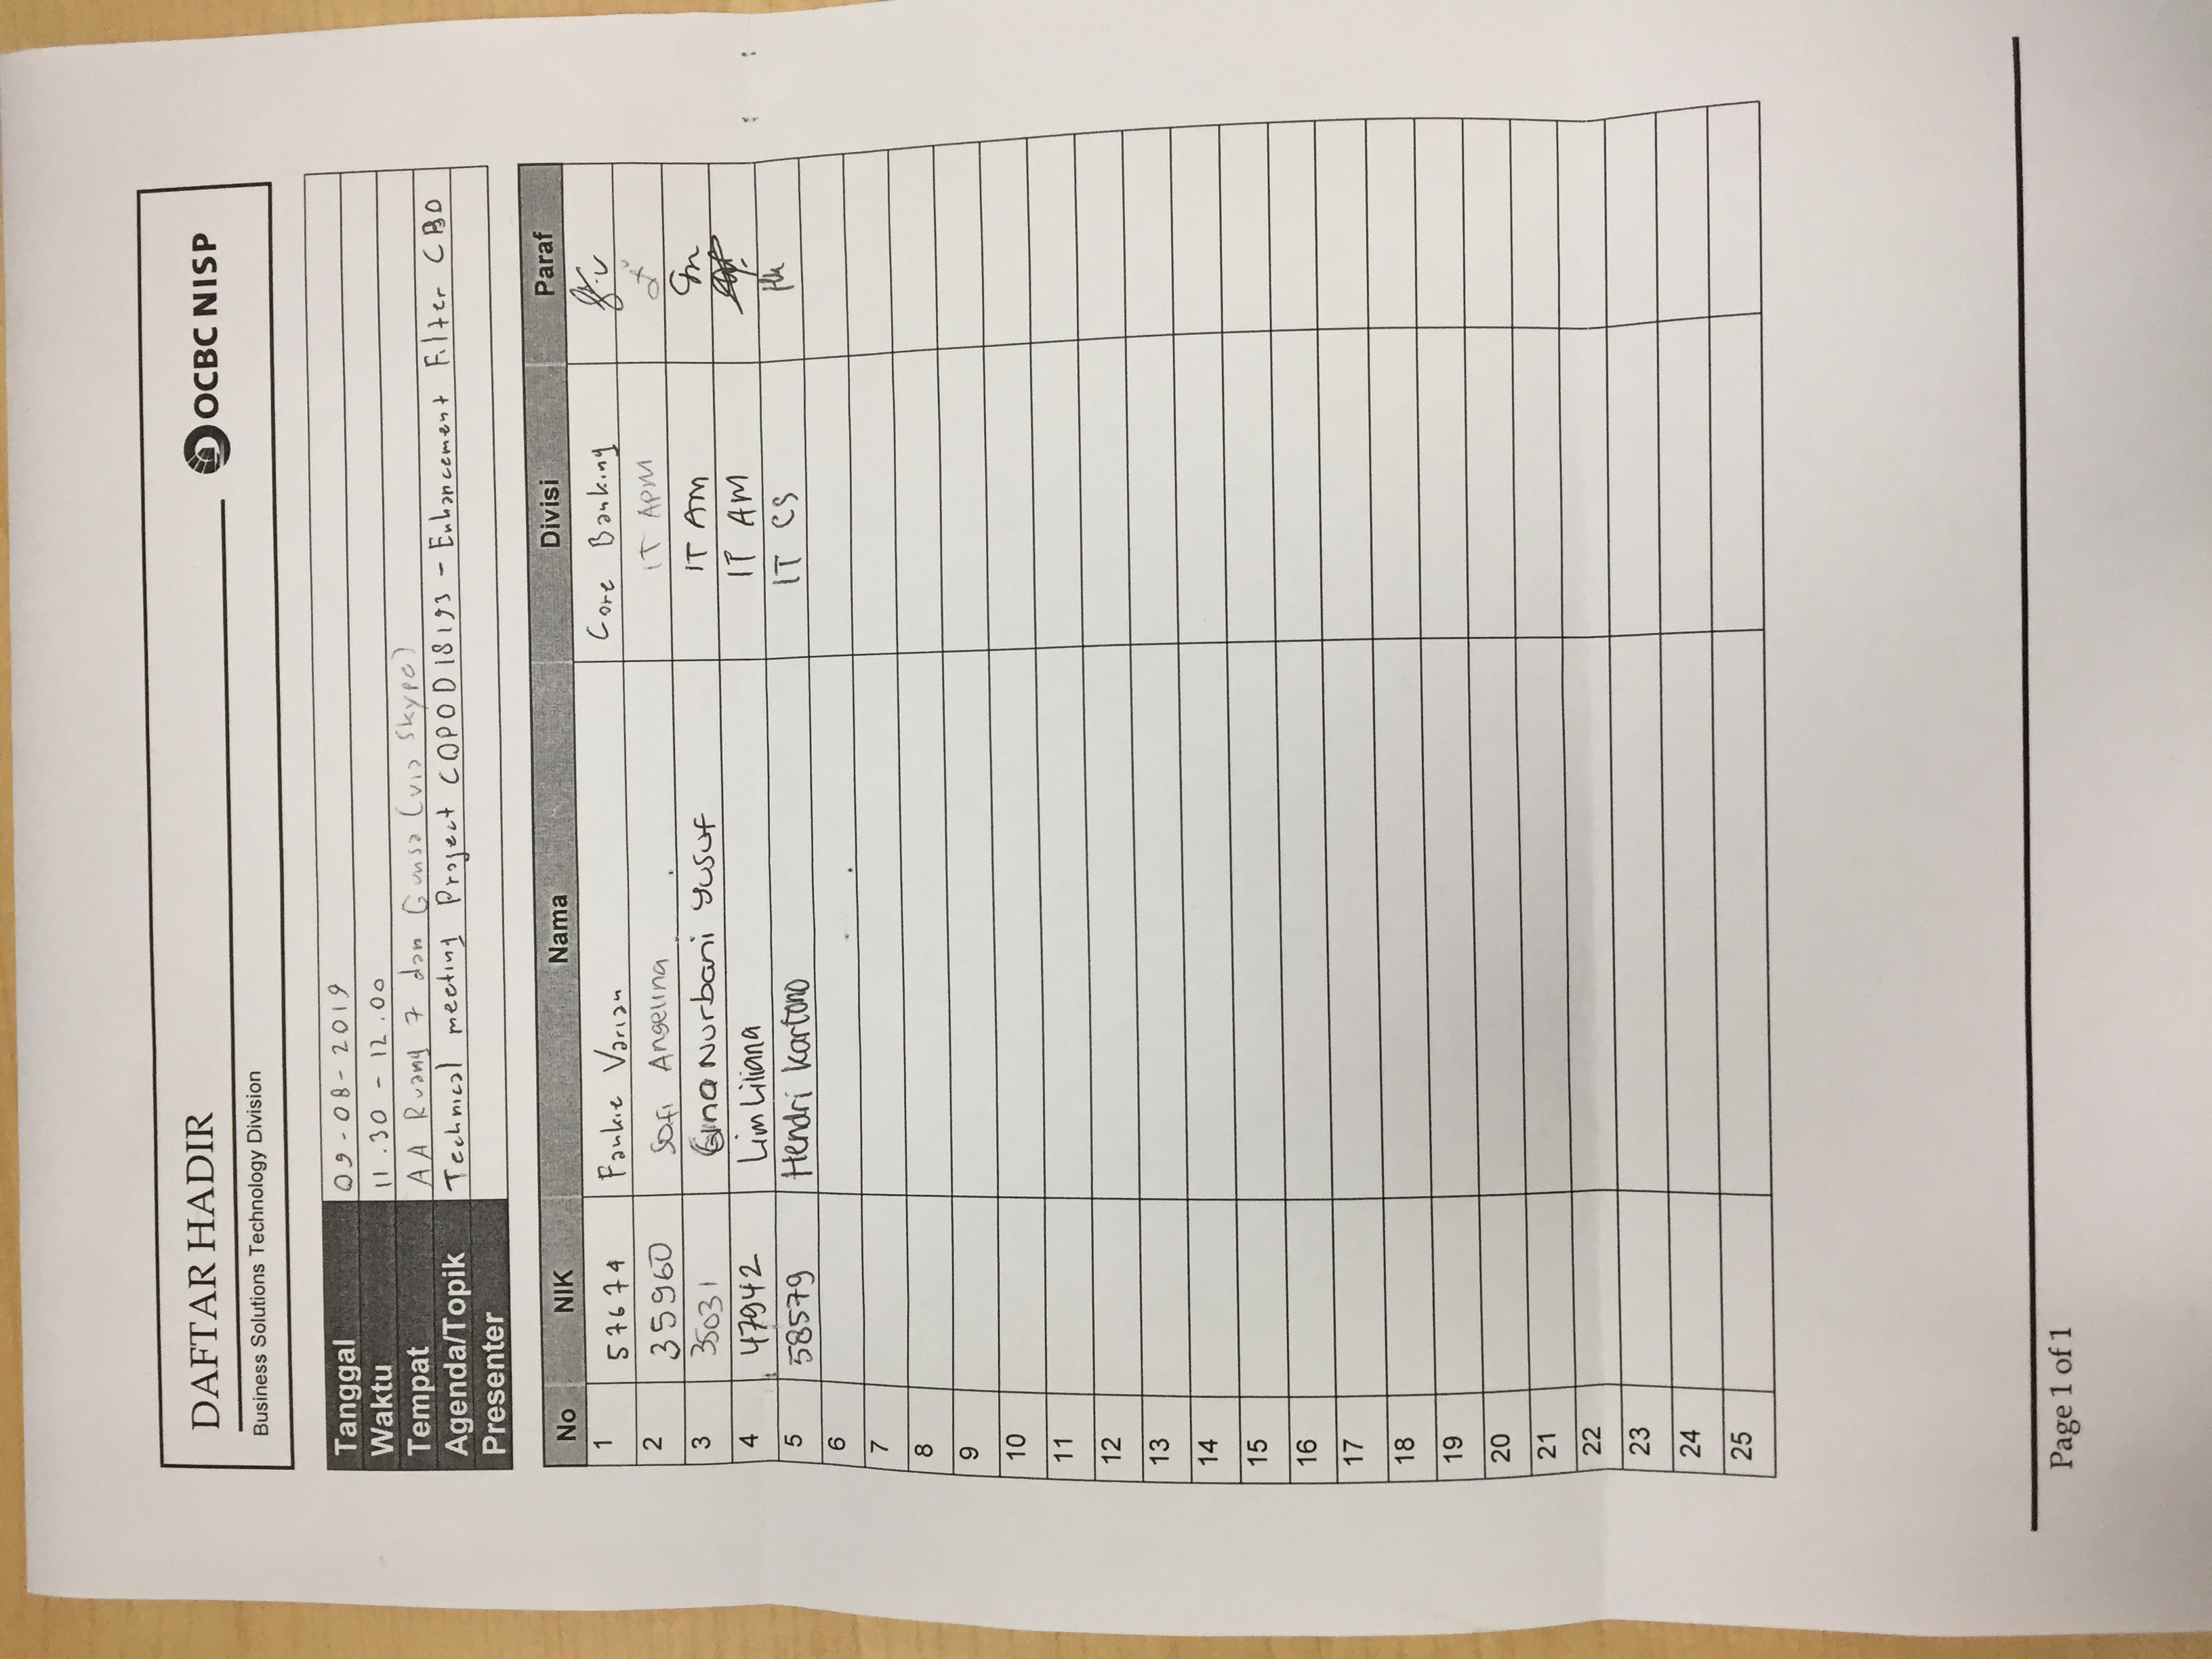 DAFTAR HADIR
OCBC NISP
Business Solutions Technology Division
Tanggal 09-08-2019
Waktu 11.30 - 12.00
Tempat AA Ruang 7 dan Gunsa (via Skype)
Agenda/Topik Technical meeting Project COPOD18193 - Enhancement Filter CBO
Presenter
No NIK Nama Divisi Paraf
1 57674 Fankie Varian Core Banking
2 35960 Sofi Angelina IT APM
3 35031 Gina Nurbani Yusuf IT AM
4 47942 Lim Liliana IT AM
5 58579 Hendri Kartono IT CS
6
7
8
9
10
11
12
13
14
15
16
17
18
19
20
21
22
23
24
25
Page 1 of 1